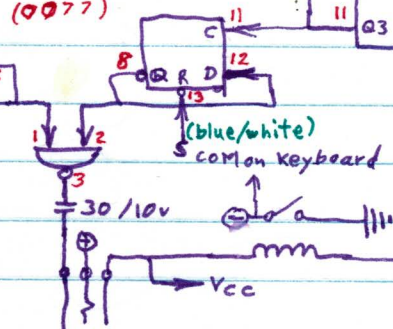 (0077)
11
11
C
Q3
8
12
Q R D
13
(blue/white)
1
2
S
com on keyboard
3
30/10v
Vcc